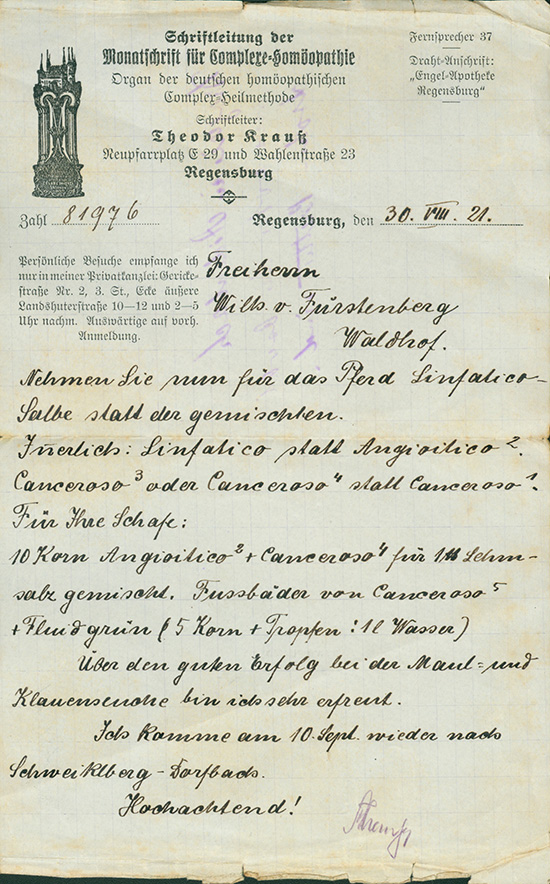 Schriftleitung der
Monatschrift für Complexe-Homöopathie
Organ der deutschen homöopathischen
Complex-Heilmethode
Schriftleiter:
Theodor Krauß
Neupfarrplatz E 29 und Wahlenstraße 23
Regensburg
Fernsprecher 37
Draht-Anschrift:
"Engel-Apotheke
Regensburg"
Zahl 81976
Regensburg, den 30. VIII. 21.
Persönliche Besuche empfange ich
nur in meiner Privatkanzlei: Gericke-
straße Nr. 2, 3. St., Ecke äußere
Landshuterstraße 10–12 und 2–5
Uhr nachm. Auswärtige auf vorh.
Anmeldung.
Freiherrn
Wilh. v. Fürstenberg
Waldhof.
Nehmen Sie nun für das Pferd Linfatico-
Salbe statt der gemischten.
Innerlich: Linfatico statt Angioitico².
Canceroso³ oder Canceroso⁴ statt Canceroso¹.
Für Ihre Schafe:
10 Korn Angioitico² + Canceroso⁴ für 1 ℔ Lehm-
salz gemischt. Fussbäder von Canceroso⁵
+ Fluid grün (5 Korn + Tropfen : 1 l Wasser)
Über den guten Erfolg bei der Maul= und
Klauenseuche bin ich sehr erfreut.
Ich komme am 10. Sept. wieder nach
Schweiklberg - Dorfbach.
Hochachtend!